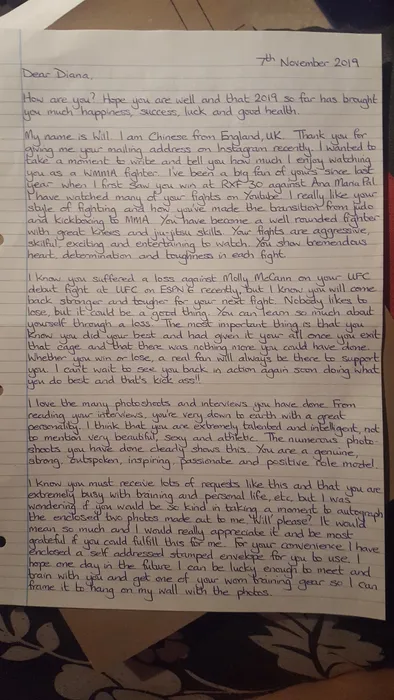 7th November 2019
Dear Diana,
How are you? Hope you are well and that 2019 so far has brought
you much happiness, success, luck and good health.
My name is Will. I am Chinese from England, UK. Thank you for
giving me your mailing address on Instagram recently. I wanted to
take a moment to write and tell you how much I enjoy watching
you as a WMMA fighter. I've been a big fan of yours since last
year when I first saw you win at RXF 30 against Ana Maria Pal.
I have watched many of your fights on Youtube. I really like your
style of fighting and how you've made the transition from judo
and kickboxing to MMA. You have become a well rounded fighter
with great knees and jiu-jitsu skills. Your fights are aggressive,
skilful, exciting and entertaining to watch. You show tremendous
heart, determination and toughness in each fight.
I know you suffered a loss against Molly McCann on your UFC
debut fight at UFC on ESPN 6 recently, but I know you will come
back stronger and tougher for your next fight. Nobody likes to
lose, but it could be a good thing. You can learn so much about
yourself through a loss. The most important thing is that you
know you did your best and had given it your all once you exit
that cage and that there was nothing more you could have done.
Whether you win or lose, a real fan will always be there to support
you. I can't wait to see you back in action again soon doing what
you do best and that's kick ass!!
I love the many photoshoots and interviews you have done. From
reading your interviews, you're very down to earth with a great
personality. I think that you are extremely talented and intelligent, not
to mention very beautiful, sexy and athletic. The numerous photo
shoots you have done clearly shows this. You are a genuine,
strong, outspoken, inspiring, passionate and positive role model.
I know you must receive lots of requests like this and that you are
extremely busy with training and personal life, etc, but I was
wondering if you would be so kind in taking a moment to autograph
the enclosed two photos made out to me 'Will' please? It would
mean so much and I would really appreciate it and be most
grateful if you could fulfill this for me. For your convenience I have
enclosed a self addressed stamped envelope for you to use. I
hope one day in the future I can be lucky enough to meet and
train with you and get one of your worn training gear so I can
frame it to hang on my wall with the photos.